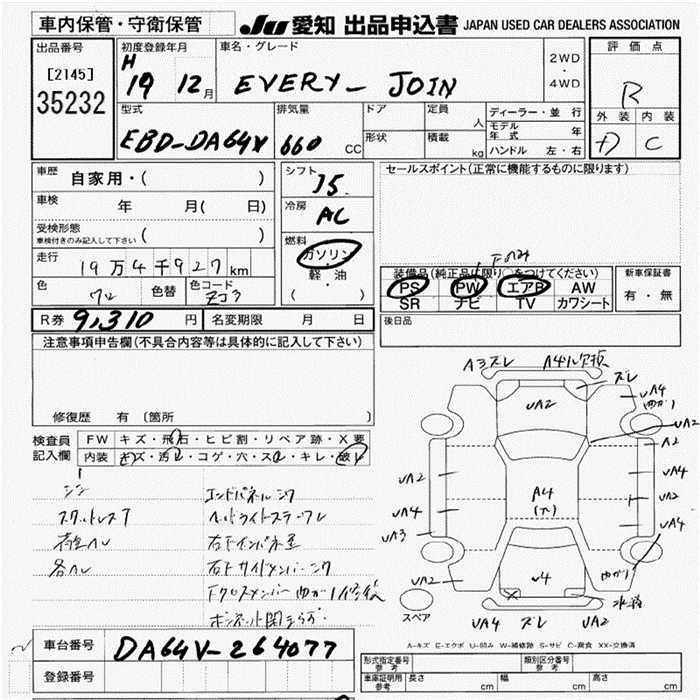 車内保管・守衛保管 JU 愛知 出品申込書 JAPAN USED CAR DEALERS ASSOCIATION
出品番号 初度登録年月 車名・グレード 評価点
[2145] H 19 12月 EVERY- JOIN 2WD・4WD R
35232 型式 排気量 ドア 定員 人 ディーラー・並行 外装 内装
EBD-DA64V 660 CC 形状 積載 kg モデル年式 年 C
ハンドル 左・右
車歴 自家用・( ) シフト セールスポイント(正常に機能するものに限ります)
車検 年 月( 日) 冷房 AC
受検形態 ( )
車検付きのみ記入して下さい
燃料
走行 19万4千927km ガソリン
軽・油
( )
装備品(純正品に限り○をつけてください) 新車保証書
色 色替 色コード ZJ3 PS PW エアB AW 有・無
SR ナビ TV カワシート
R券 9,310円 名変期限 月 日 後日品
注意事項申告欄(不具合内容等は具体的に記入して下さい)
修復歴 有 〔箇所
検査員記入欄 FW キズ・飛石・ヒビ割・リペア跡・X要
内装 キズ・汚れ・コゲ・穴・スレ・キレ・破れ
シミ エンドパネルサク
スタットレスT
荷室ヘレ
各ヘレ
A3ズレ
ズレ
UA4
UA2
UA2
A2
UA2
A4
UA2
UA4
UA4
UA3
UA2
U4
UA4 ズレ UA2
スペア
A-キズ E-エクボ U-凹み W-補修跡 S-サビ C-腐食 XX-交換済
車台番号 DA64V-264077
登録番号
形式指定番号 参考 類別区分番号 参考
車庫証明用 参考 長さ cm 幅 cm 高さ cm